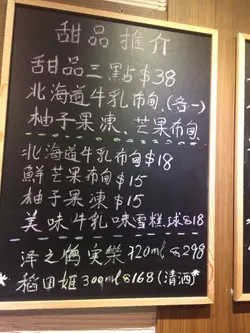 甜品推介
甜品三點$38
北海道牛乳布甸.(各一)
柚子果凍、芒果布甸、
北海道牛乳布甸$18
鮮芒果布甸$15
柚子果凍$15
美味牛乳味雪糕球@$18
澤之鶴実樂720ml@298
*稻田姬300ml@168(清酒)*